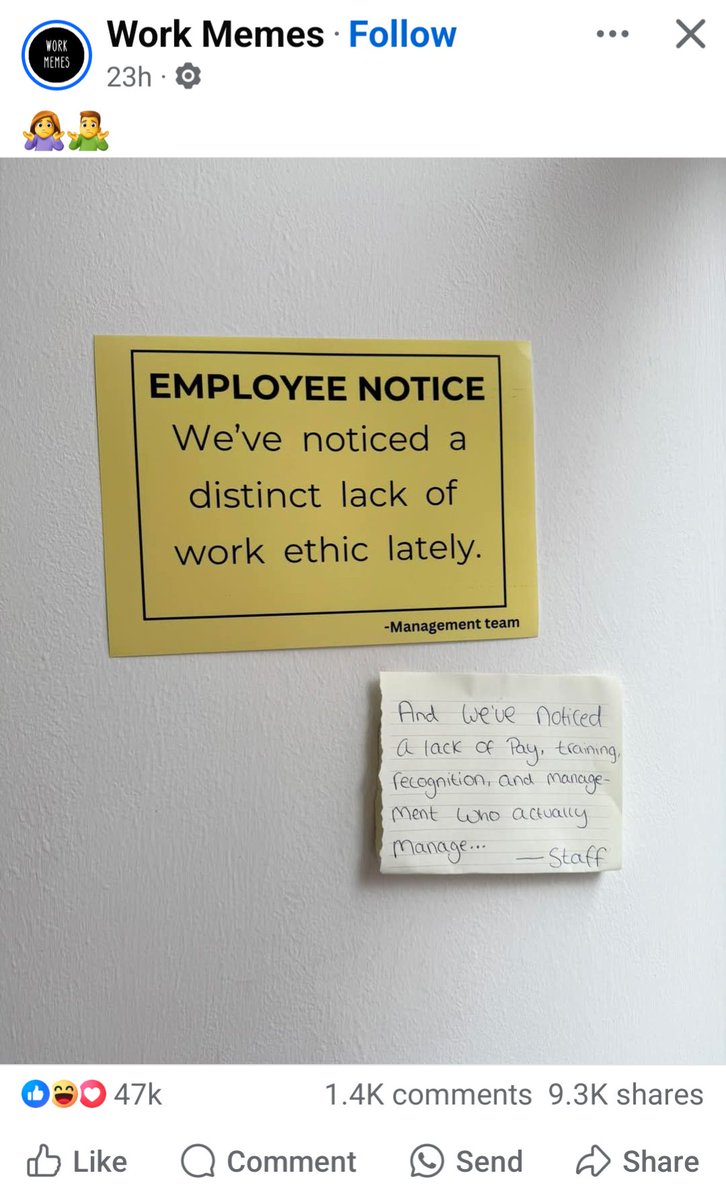 WORK
MEMES
Work Memes · Follow
23h ·
🤷‍♀️🤷‍♂️
EMPLOYEE NOTICE
We've noticed a
distinct lack of
work ethic lately.
-Management team
And we've noticed
a lack of Pay, training,
recognition, and manage-
ment who actually
manage...
—Staff
47k
1.4K comments 9.3K shares
Like
Comment
Send
Share